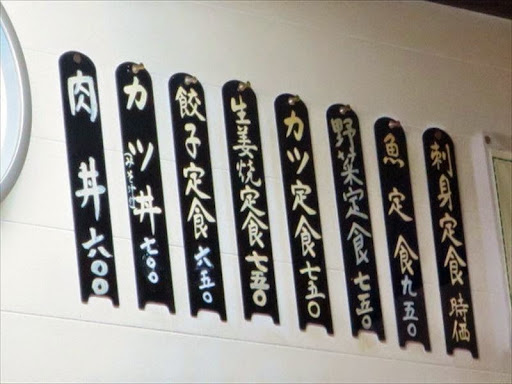 刺身定食 時価
魚定食 九五〇
野菜定食 七五〇
カツ定食 七五〇
生姜焼定食 七五〇
餃子定食 六五〇
カツ丼 七〇〇
肉丼 六〇〇